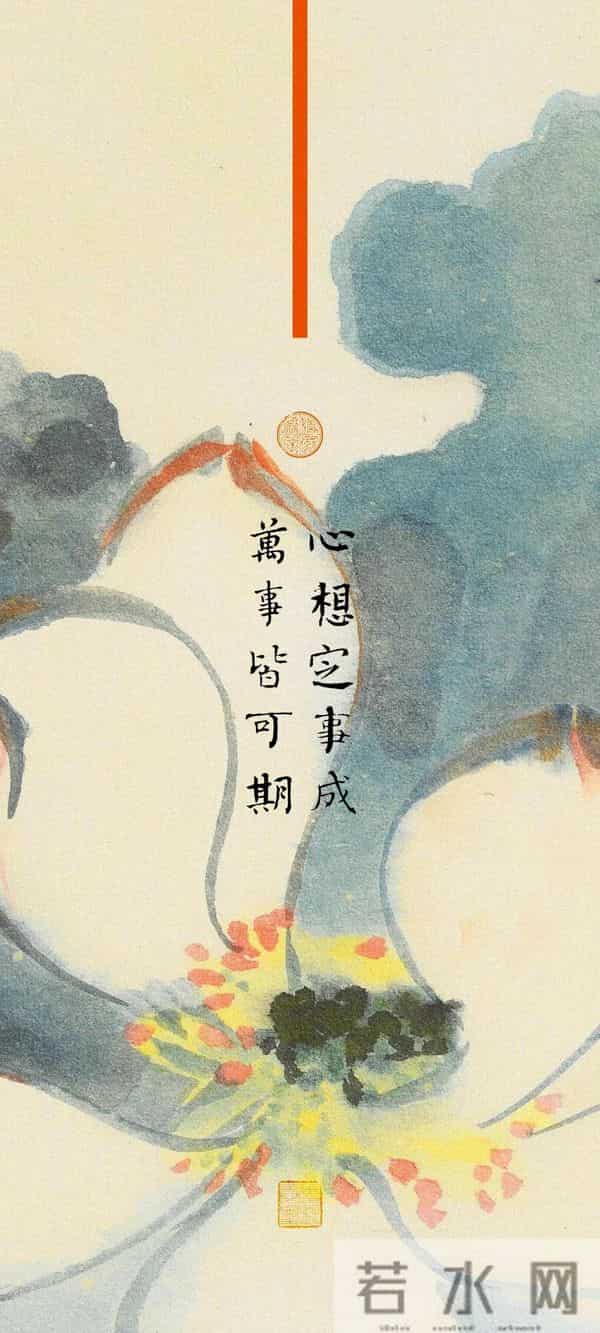 心想定事成
萬事皆可期
若水网